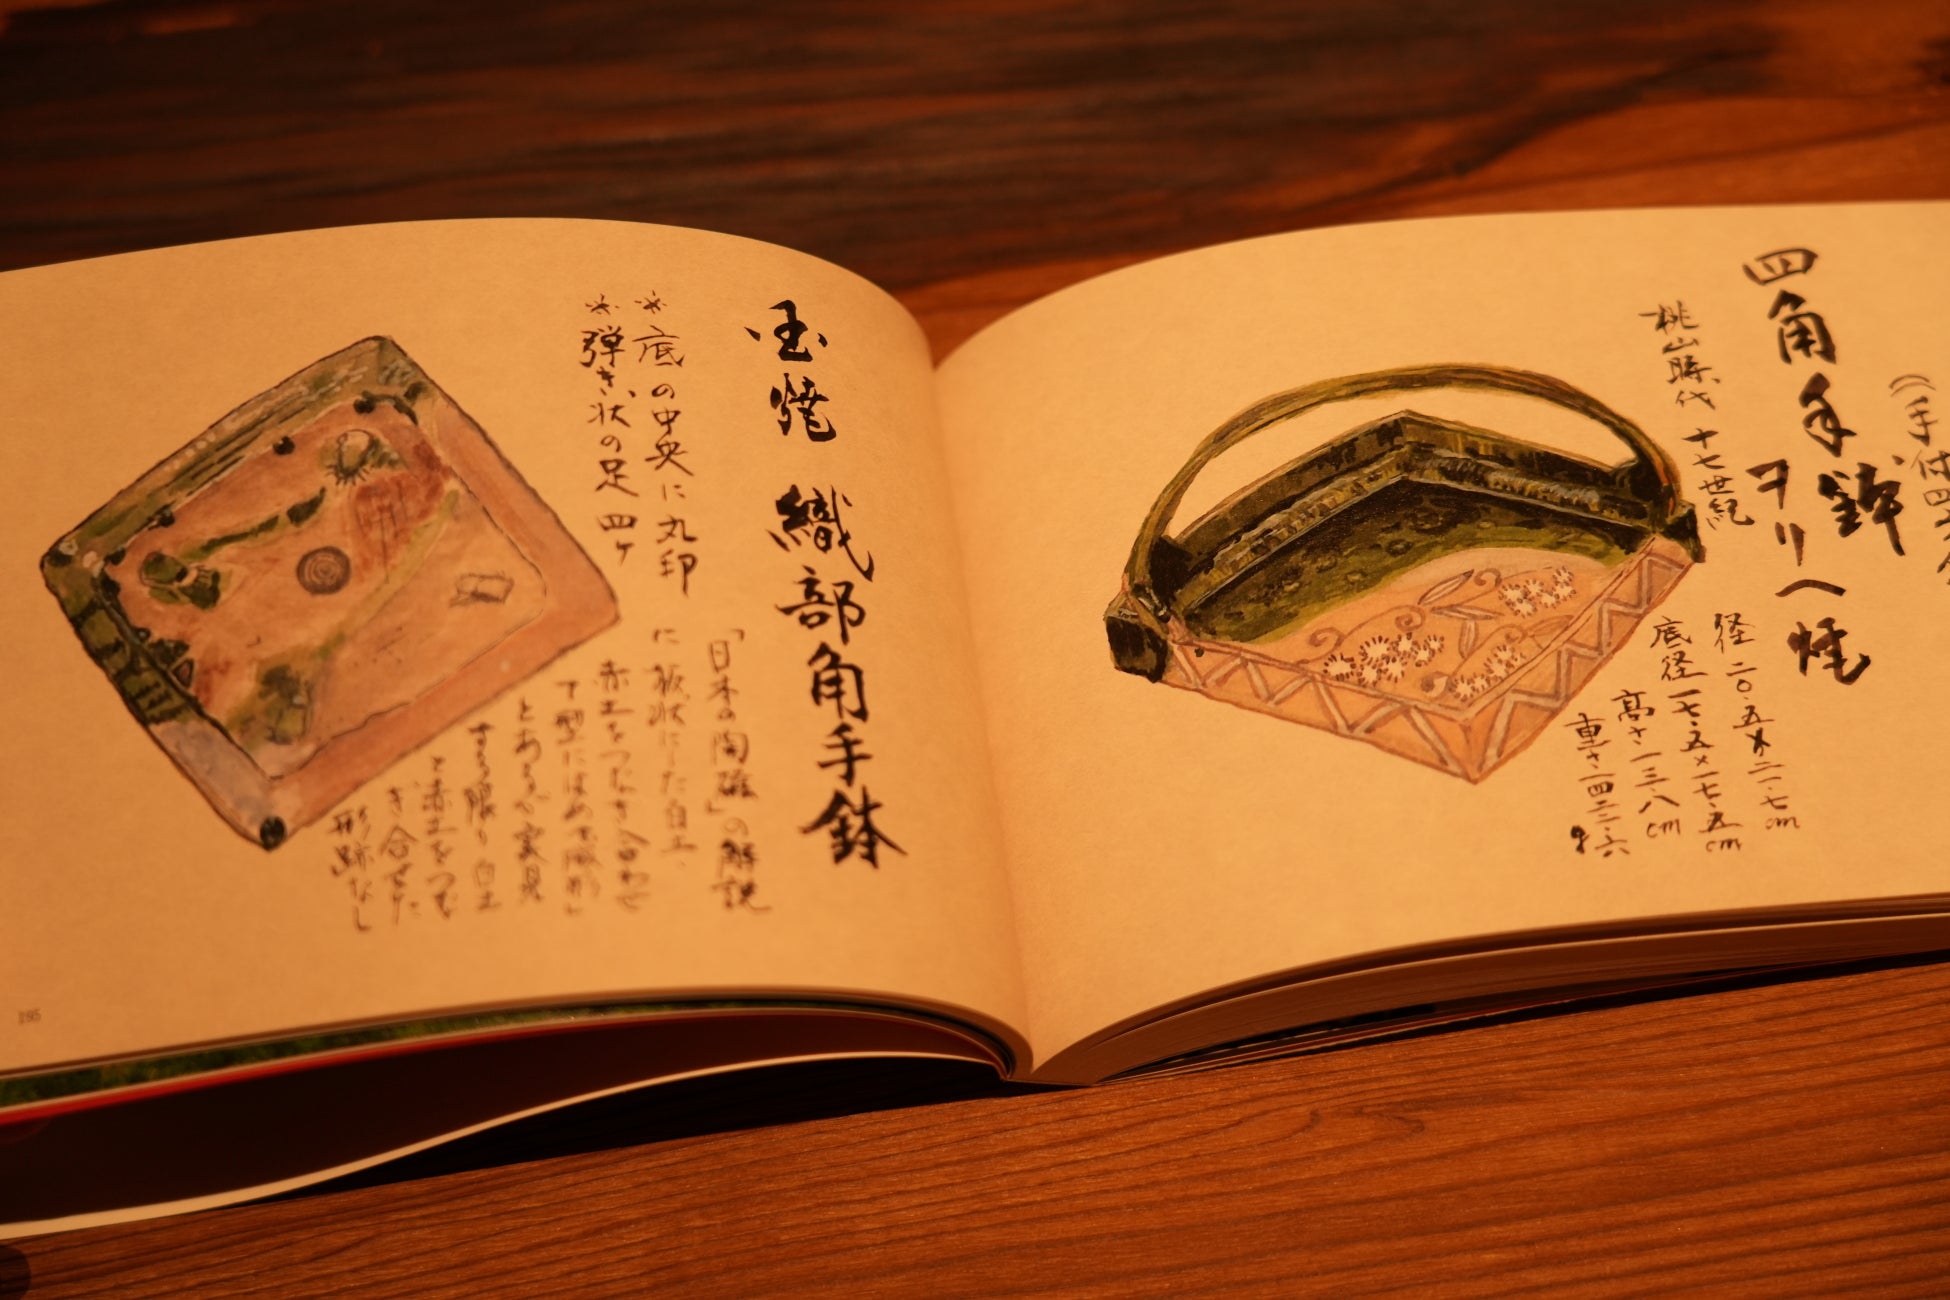 四角手鉢
ヲリヘ焼
桃山時代 十七世紀
径 二〇・五×二一・七cm
底径 一七・五×一七・五cm
高さ 一三・八cm
重さ 一四二三・六
国焼 織部角手鉢
*底の中央に丸印
*弾き状の足 四ヶ
「日本の陶磁」の解説
に板状にした白土、
赤土をつなぎ合わせ
て型にはめて成形」
とあるが実見
する限り白土
と赤土をつな
ぎ合せた
形跡なし
195